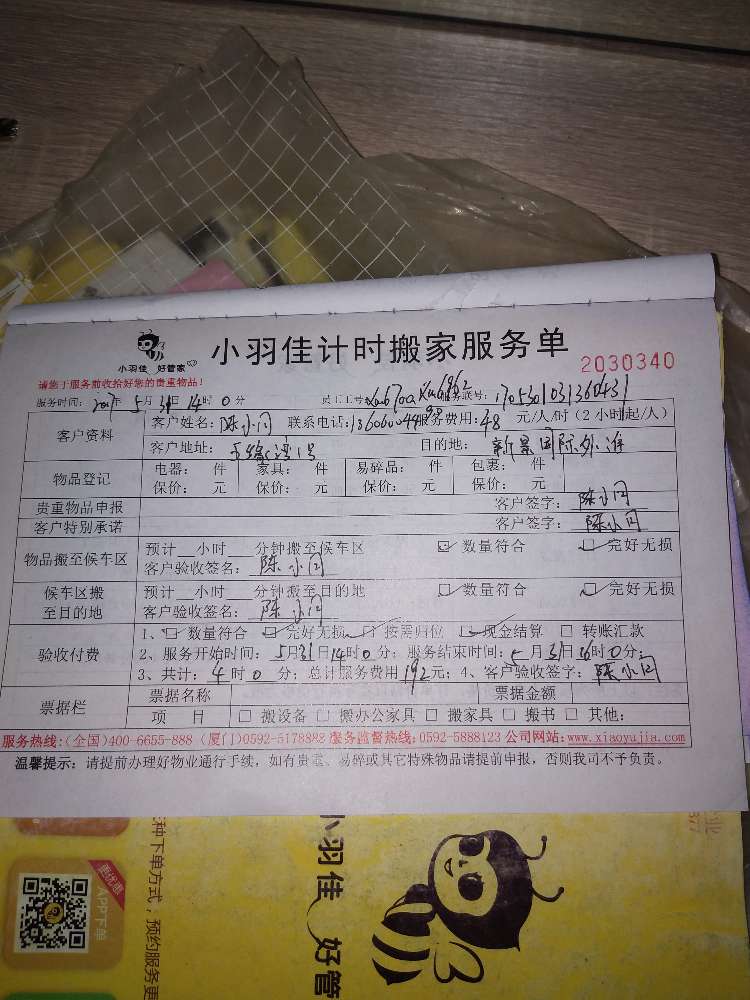 小羽佳 好管家
小羽佳计时搬家服务单
2030340
请您于服务前收拾好您的贵重物品!
服务时间: 2017年 5月 31日 14时 0分 员工工号: 服务联号:
客户资料
客户姓名: 陈小闪 联系电话: 服务费用: 48 元/人/时(2小时起/人)
客户地址: 目的地: 新景国际外滩
物品登记
电器: 件 家具: 件 易碎品: 件 包裹: 件
保价: 元 保价: 元 保价: 元 保价: 元
贵重物品申报 客户签字: 陈小闪
客户特别承诺 客户签字: 陈小闪
物品搬至候车区
预计__小时__分钟搬至候车区 ☑ 数量符合 ☑ 完好无损
客户验收签名: 陈小闪
候车区搬至目的地
预计__小时__分钟搬至目的地 ☑ 数量符合 ☑ 完好无损
客户验收签名: 陈小闪
验收付费
1、☑ 数量符合 ☑ 完好无损 ☑ 按需归位 ☑ 现金结算 □ 转账汇款
2、服务开始时间: 5月31日14时0分; 服务结束时间: 5月31日 时0分;
3、共计: 4时0分; 总计服务费用192元; 4、客户验收签字: 陈小闪
票据栏
票据名称 票据金额
项 目 □ 搬设备 □ 搬办公家具 □ 搬家具 □ 搬书 □ 其他:
服务热线:(全国)400-6655-888 (厦门)0592-5178882 服务监督热线:0592-5888123 公司网站:www.xiaoyujia.com
温馨提示: 请提前办理好物业通行手续,如有贵重、易碎或其它特殊物品请提前申报,否则我司不予负责。
更优惠
APP下单
种下单方式,预约服务更
小羽佳 好管